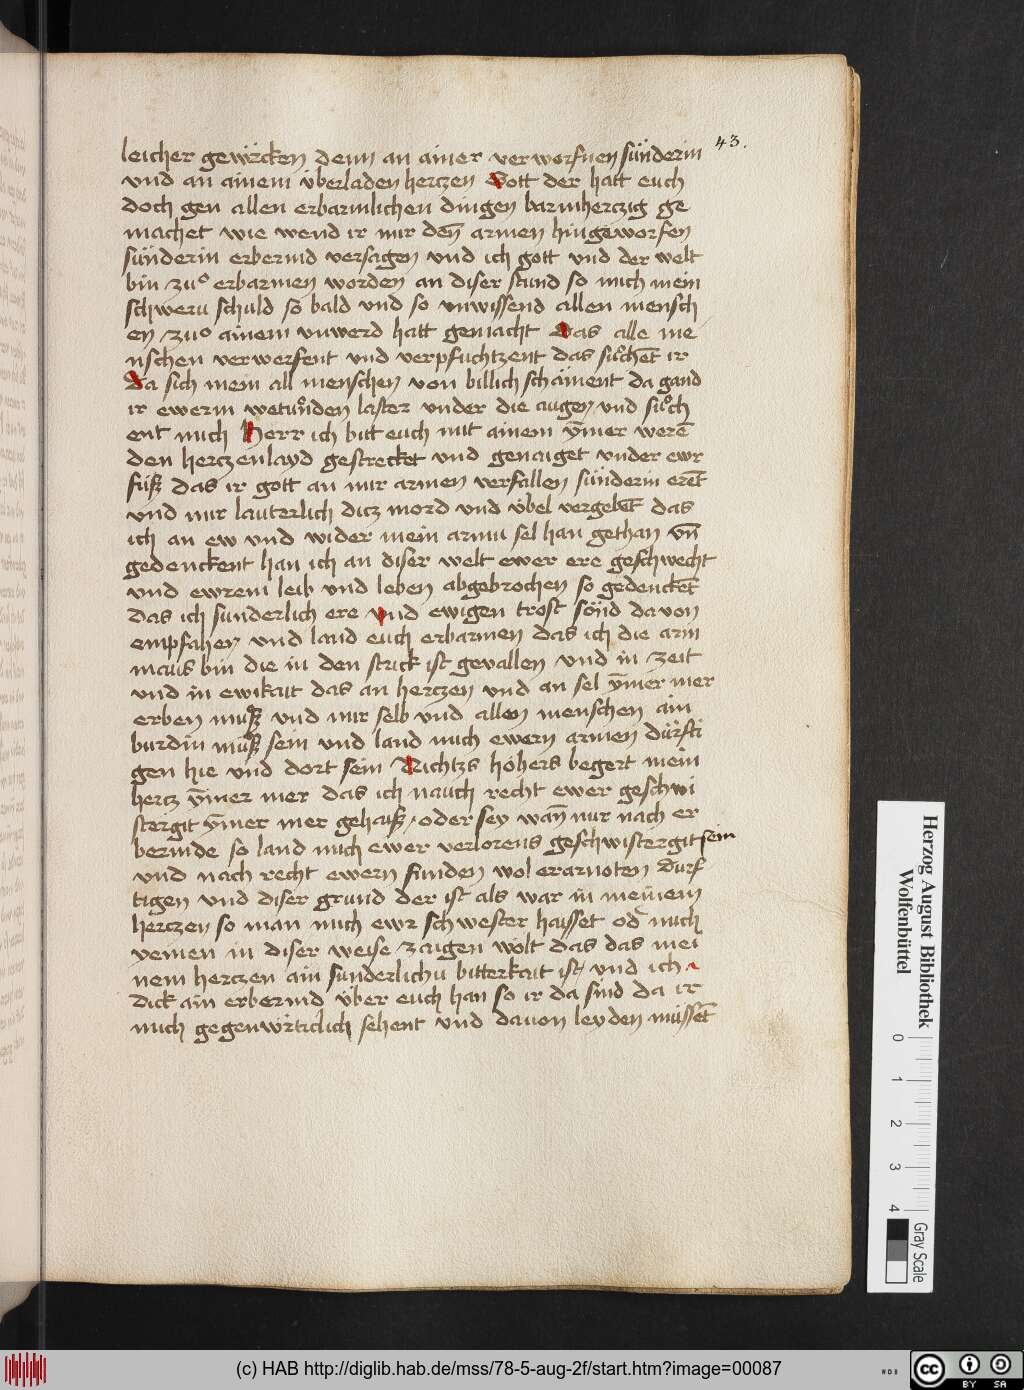 43.
leicher gewürcken denn an ainer verworfnen sünderin
vnd an ainem überladen hertzen Gott der hatt euch
doch gen allen erbarmlichen dingen barmhertzig ge
machet wie wend ir mir deñ armen hingeworfen
sünderin erbermd versagen vnd ich gott vnd der welt
bin zuº erbarmen worden an diser stund so mich mein
schweru schuld so bald vnd so vnwissend allen mensch
en zuº ainem vnwerd hatt gemacht Was alle me
nschen verwerfent vnd verpfuchtzent das suͦchēt ir
Da sich mein all menschen von billich schament da gand
ir ewerm laster vnder die augen vnd suͦch
ent mich Herr ich bitt euch mit ainem ÿmer werē
den hertzenlayd gestrecket vnd genaiget vnder ewr
füß das ir gott an mir armen verfallen sünderin erēt
vnd mir lauterlich ditz mord vnd übel vergebēt das
ich an ew vnd wider mein armu sel han gethan vñ
gedenckent han ich an diser welt ewer ere geschwecht
vnd ewrem leib vnd leben abgebrochen so gedenckēt
das ich sunderlich ere vnd ewigen trost sönd da von
empfahen vnd land euch erbarmen das ich die arm
maus bin die in den strick ist gevallen vnd in zeit
vnd in ewikait das an hertzen vnd an sel ÿmer mer
erben muß vnd mir selb vnd allen menschen ain
burdin muß sein vnd land mich ewern armen dürfti
gen hie vnd dort sein Nichtzs höhers begert mein
hertz ÿmer mer das ich nauch recht ewer geschwi
stergit ÿmer mer gehaiß oder sey wañ nur nach er
bermde so land mich ewer verlorens geschwistergit sein
vnd nach recht ewern funden wol erarnoten durf
tigen vnd diser grund der ist als war in meinem
hertzen so man mich ewr schwester haisset od mich
yemen in diser weise zaigen wölt das das mei
nem hertzen ain sunderlichu bitterkait ist vnd ich
dick ain erbermd über euch han so ir da sind da ir
mich gegenwirticlich sehent vnd dauon leyden müssēt
Herzog August Bibliothek
Wolfenbüttel
0 1 2 3 4
Gray Scale
(c) HAB http://diglib.hab.de/mss/78-5-aug-2f/start.htm?image=00087
WDB
cc BY SA